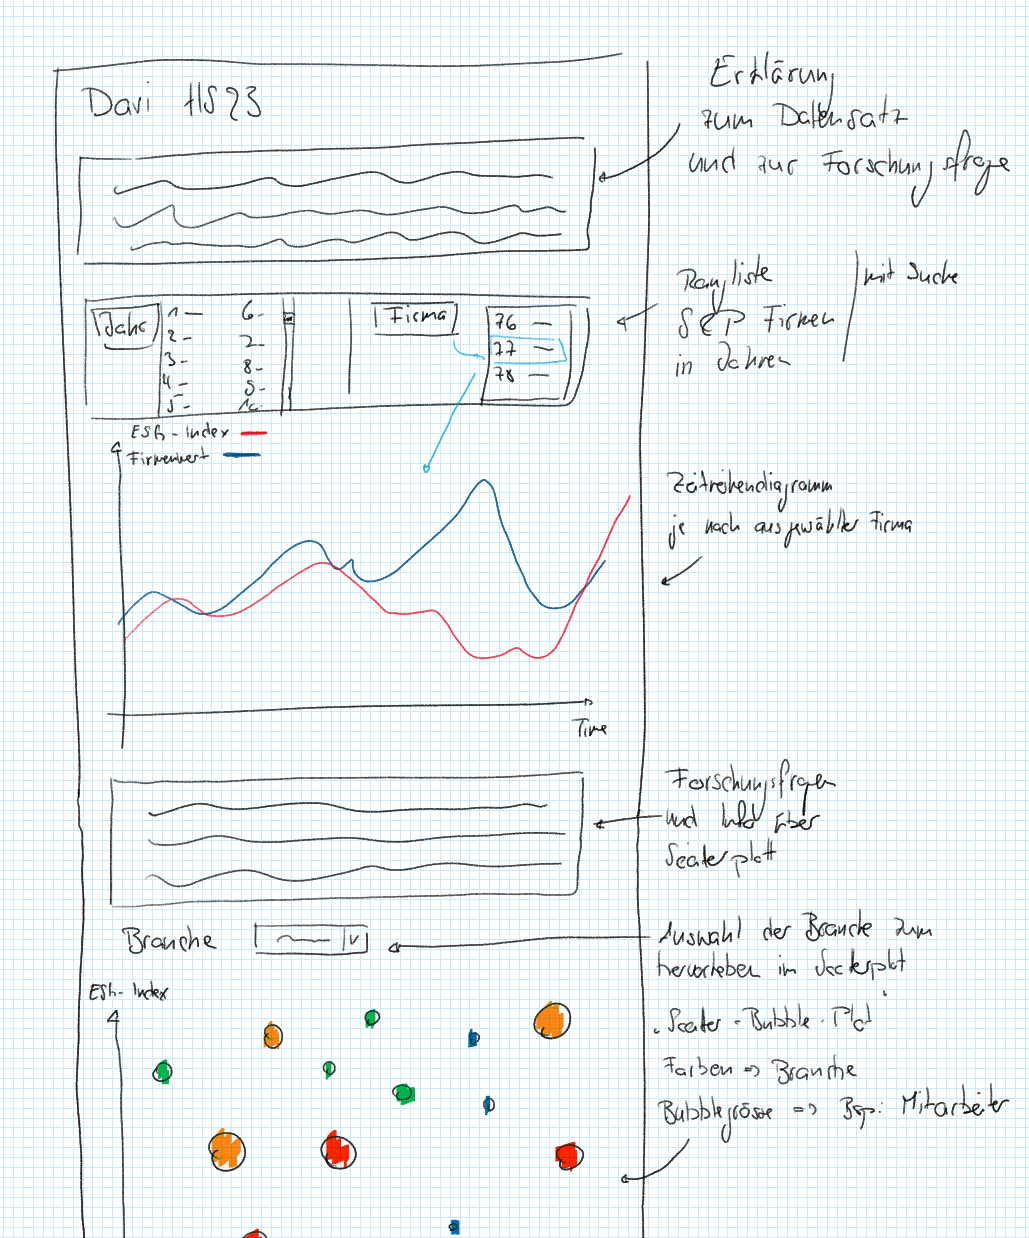 Davi HS23
Erklärung
zum Datensatz
und zur Forschungsfrage
Jahr
1
2
3
4
5
6
7
8
9
10
Firma
76
77
78
Rangliste
S&P Firmen
in Jahren
mit Suche
ESG-Index
Firmenwert
Zeitreihendiagramm
je nach ausgewählter Firma
Time
Forschungsfragen
und Info über
Scaterplott
Branche
V
Auswahl der Branche zum
hervorheben im Scaterplot
ESG-Index
"Scater-Bubble-Plot"
Farben => Branche
Bubblegrösse => Bsp: Mitarbeiter